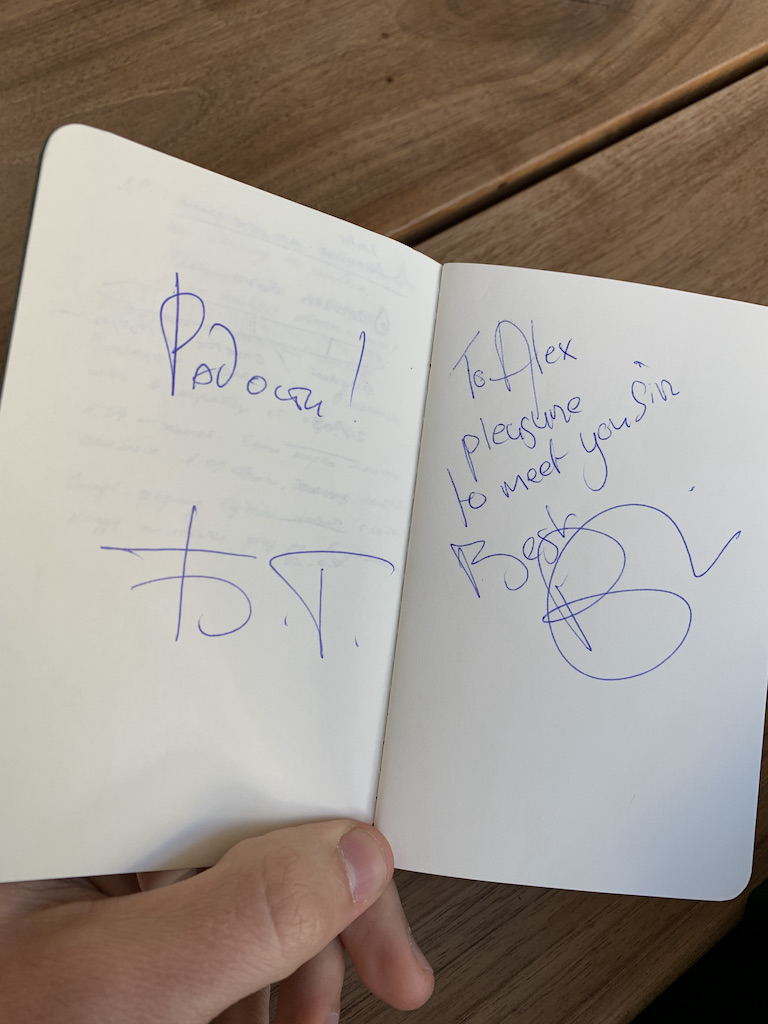 Радости!
Б.Г.
To Alex
pleasure
to meet you Sir
Best